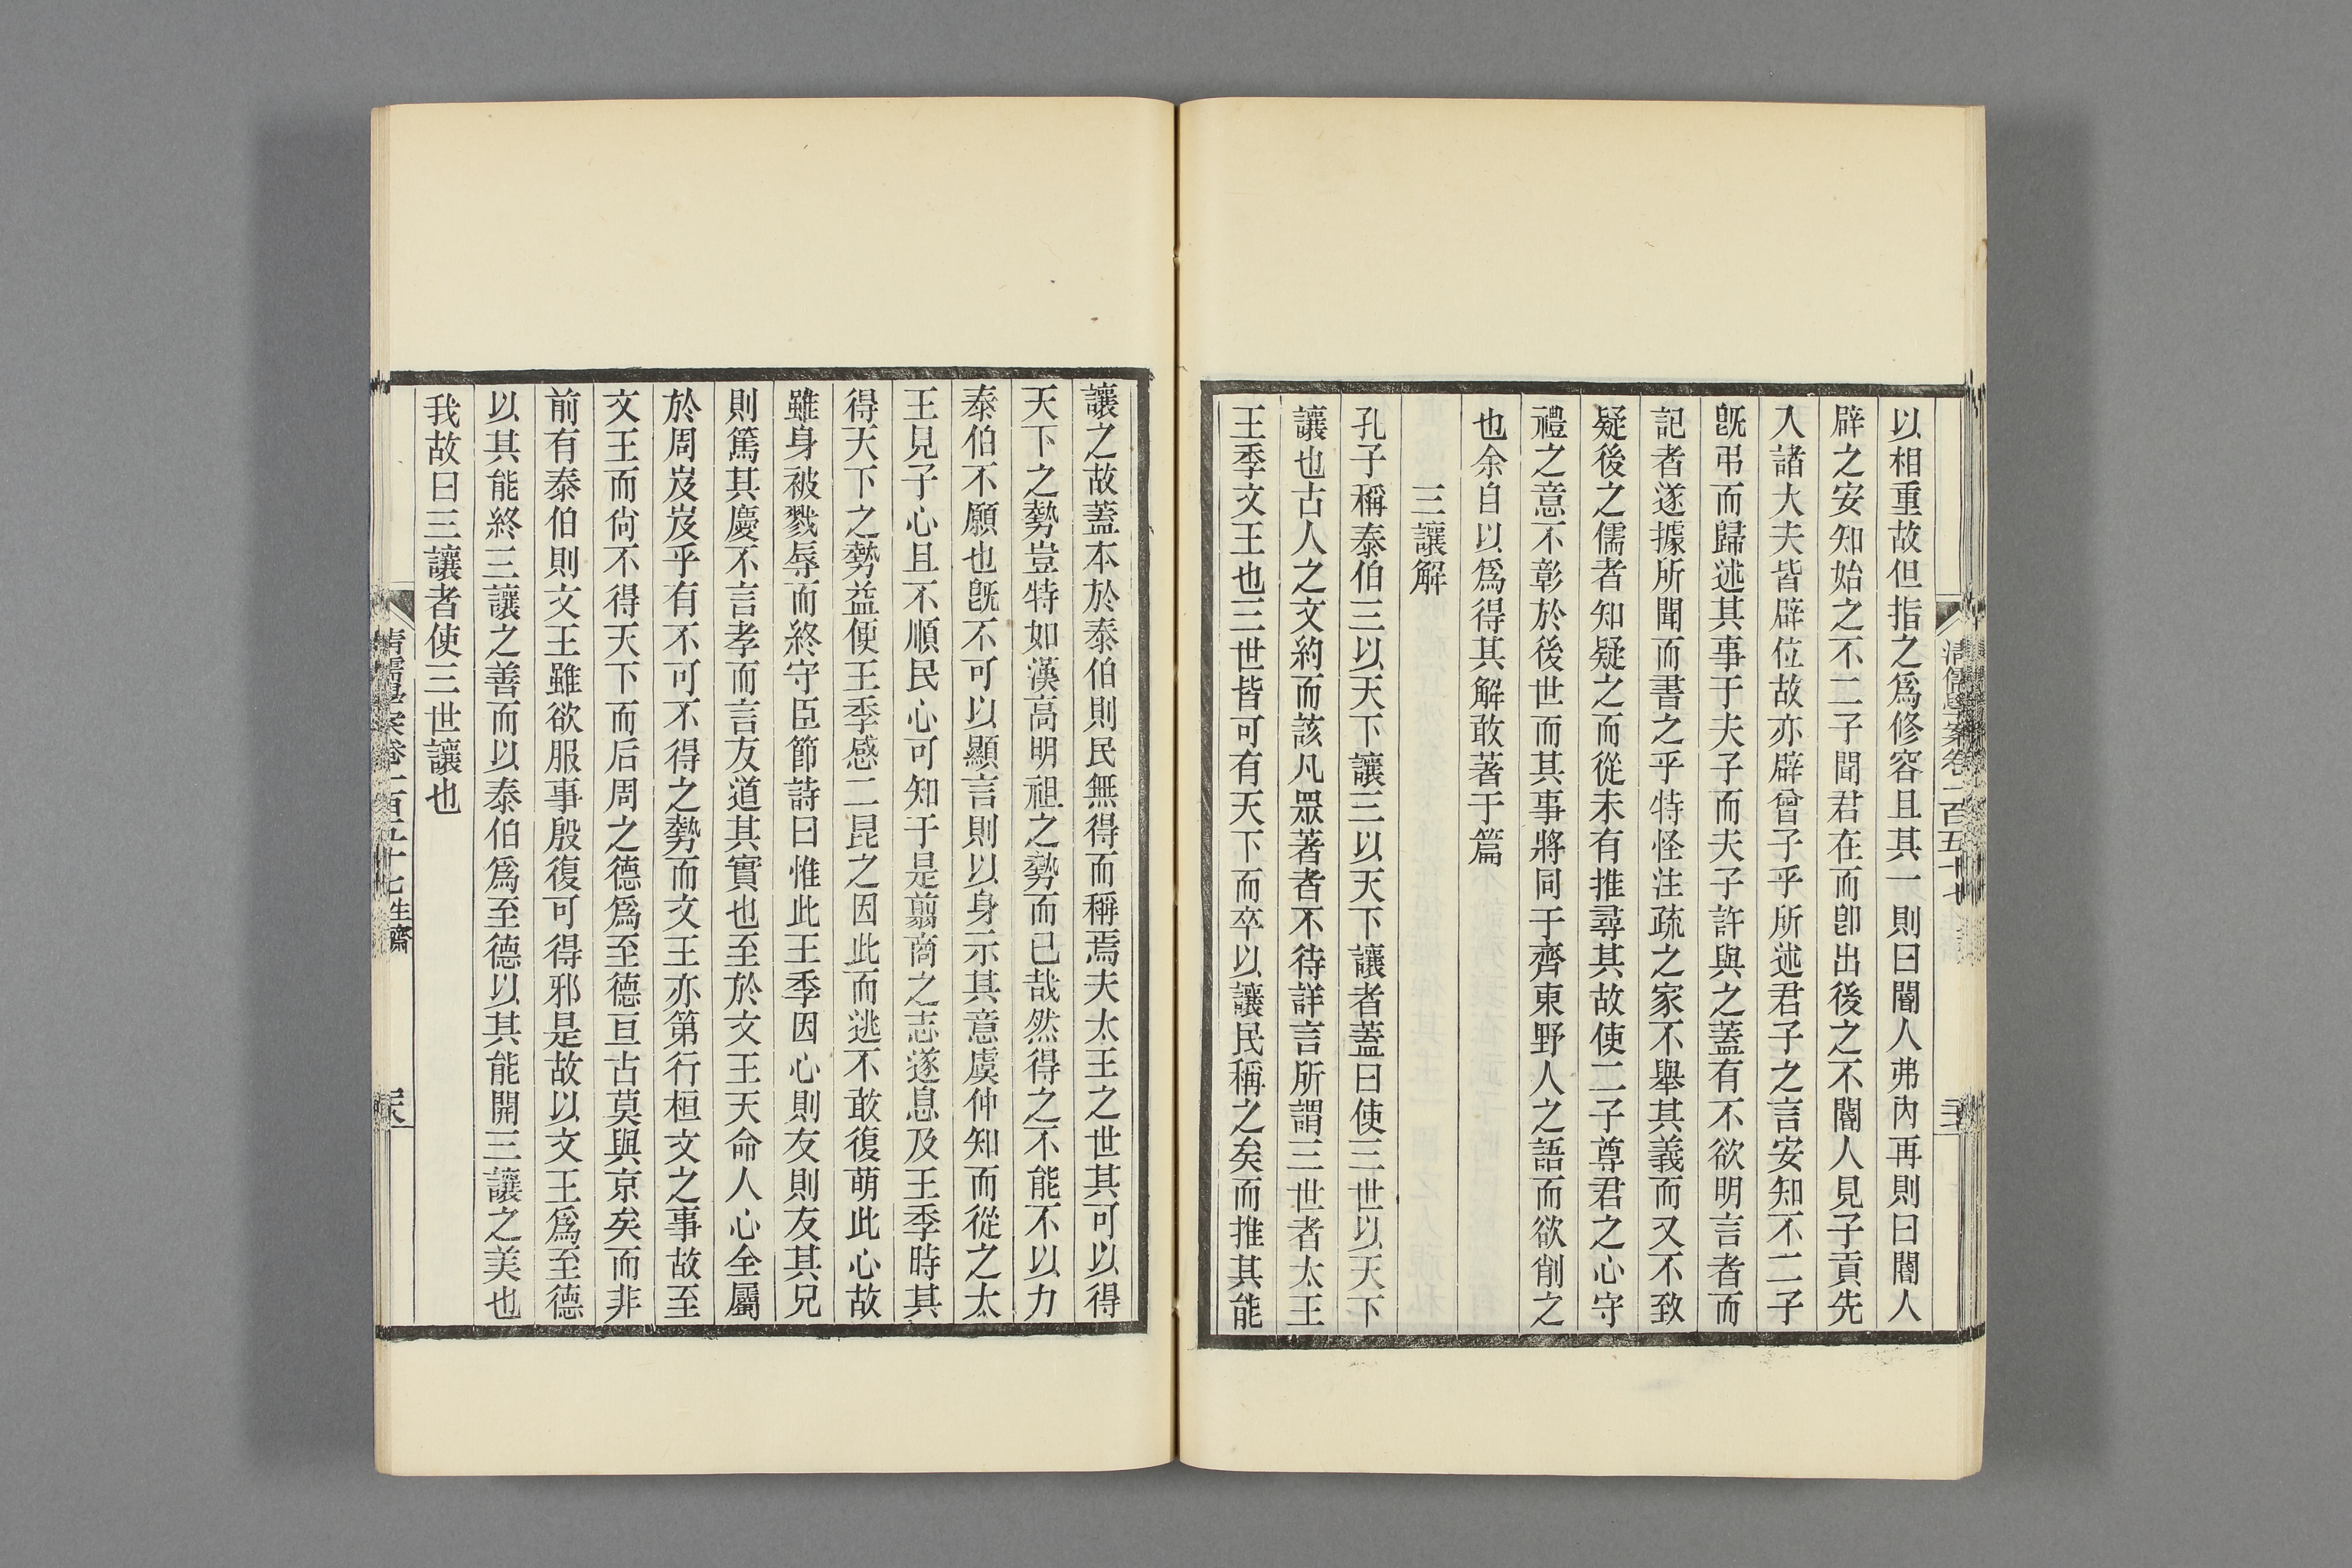 以相重故但指之爲修容且其一則曰閽人弗內再則曰閽人
辟之安知始之不二子聞君在而卽出後之不閽人見子貢先
入諸大夫皆辟位故亦辟曾子乎所述君子之言安知不二子
旣弔而歸述其事于夫子而夫子許與之蓋有不欲明言者而
記者遂據所聞而書之乎特怪注疏之家不舉其義而又不致
疑後之儒者知疑之而從未有推尋其故使二子尊君之心守
禮之意不彰於後世而其事將同于齊東野人之語而欲削之
也余自以爲得其解敢著于篇
三讓解
孔子稱泰伯三以天下讓三以天下讓者蓋曰使三世以天下
讓也古人之文約而該凡眾著者不待詳言所謂三世者太王
王季文王也三世皆可有天下而卒以讓民稱之矣而推其能
讓之故蓋本於泰伯則民無得而稱焉夫太王之世其可以得
天下之勢豈特如漢高明祖之勢而已哉然得之不能不以力
泰伯不願也旣不可以顯言則以身示其意虞仲知而從之太
王見子心且不順民心可知于是翦商之志遂息及王季時其
得天下之勢益便王季感二昆之因此而逃不敢復萌此心故
雖身被戮辱而終守臣節詩曰惟此王季因心則友則友其兄
則篤其慶不言孝而言友道其實也至於文王天命人心全屬
於周岌岌乎有不可不得之勢而文王亦第行桓文之事故至
文王而尙不得天下而后周之德爲至德亘古莫與京矣而非
前有泰伯則文王雖欲服事殷復可得邪是故以文王爲至德
以其能終三讓之善而以泰伯爲至德以其能開三讓之美也
我故曰三讓者使三世讓也
清儒學案卷一百五十七 生齋